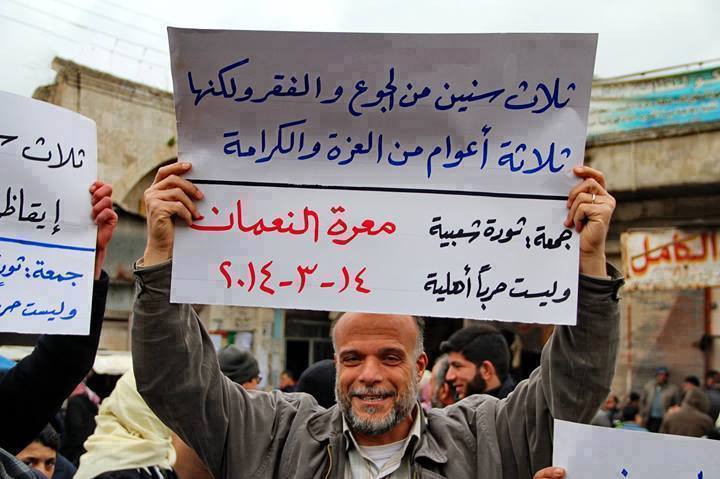 ثلاث سنين من الجوع والفقر ولكنها
ثلاثة أعوام من العزة والكرامة
جمعة: ثورة شعبية
وليست حرباً أهلية
معرة النعمان
١٤-٣-٢٠١٤
ثلاث
جمعة: ثو
وليست حر
الكامل